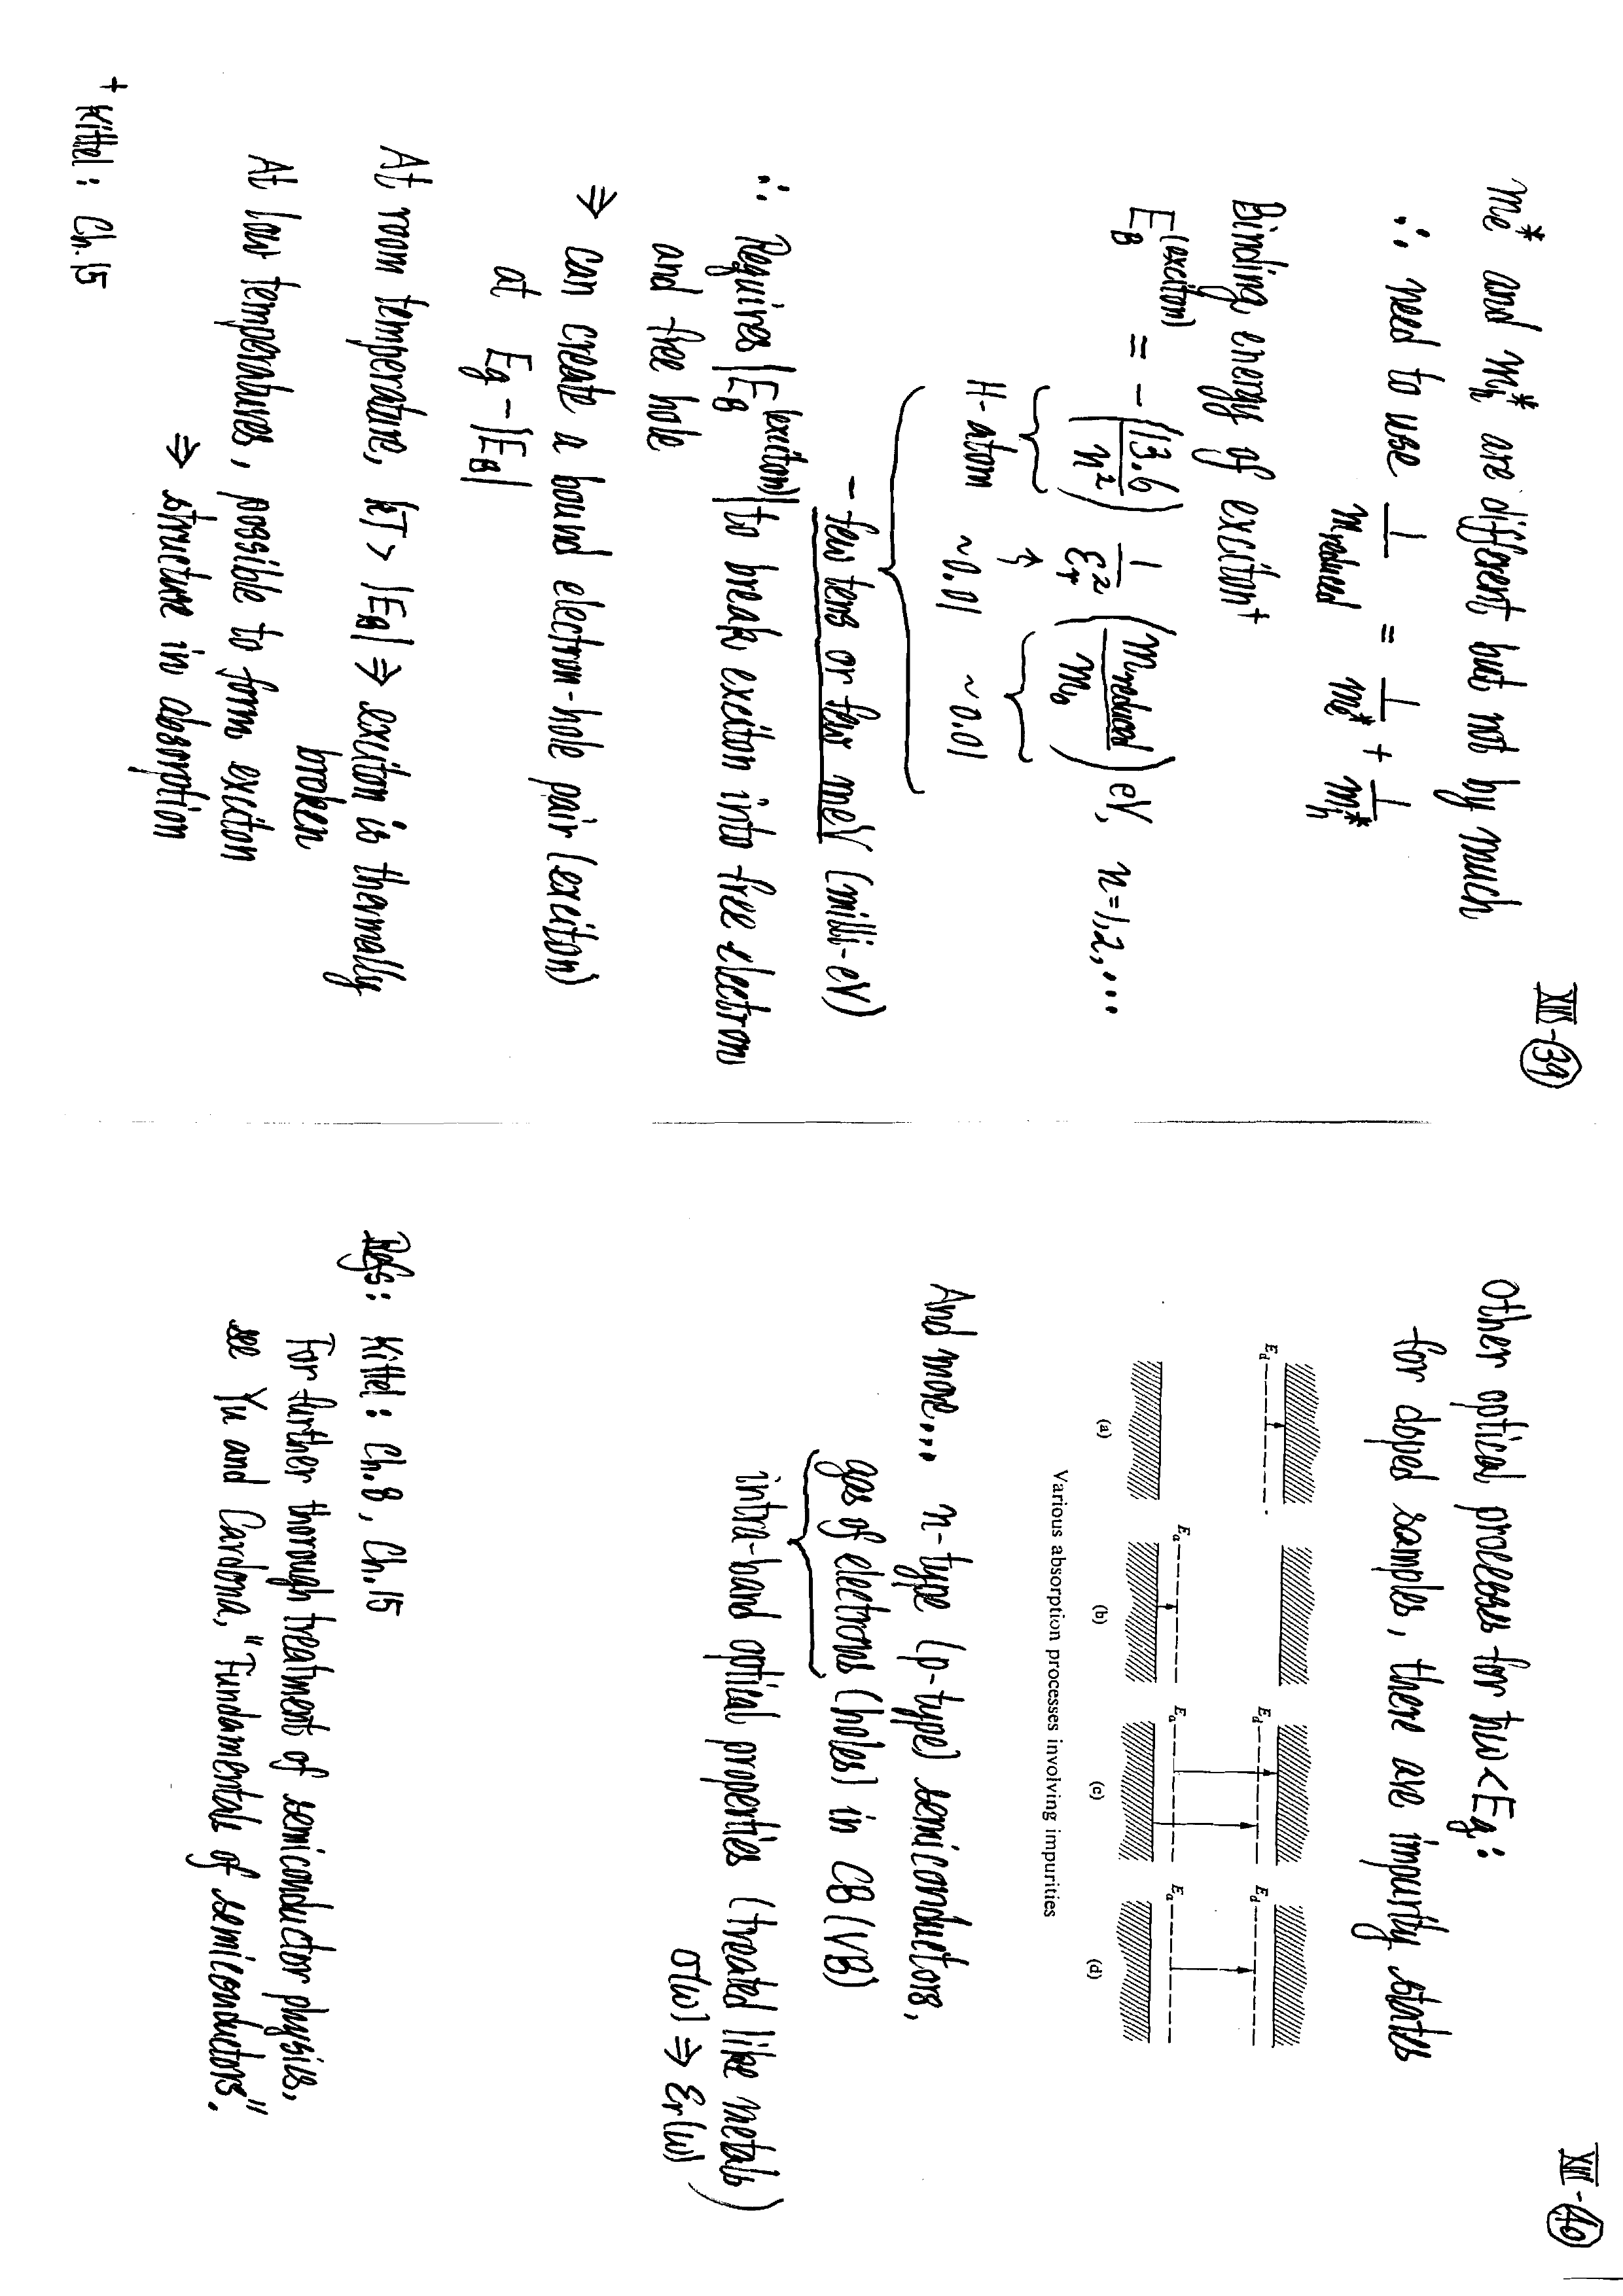 XIII-39
me* and mh* are different but not by much
∴ need to use 1/m_reduced = 1/me* + 1/mh*
Binding energy of exciton†
E_B^(exciton) = -(13.6/n²) 1/εr² (m_reduced/m0) eV, n=1,2,...
H-atom ~0.01 ~0.01
- few tens or few meV (milli-eV)
∴ Requires |E_B^(exciton)| to break exciton into free electron
and free hole
⇒ can create a bound electron-hole pair (exciton)
at Eg-|E_B|
At room temperature, kT > |E_B| ⇒ exciton is thermally
broken
At low temperatures, possible to form exciton
⇒ structure in absorption
† Kittel: Ch.15
XIII-40
Other optical processes for ħω<Eg:
for doped samples, there are impurity states
Ed Ea Ed Ea Ed Ea
(a) (b) (c) (d)
Various absorption processes involving impurities
And more... n-type (p-type) semiconductors,
gas of electrons (holes) in CB (VB)
intra-band optical properties (treated like metals
σ(ω) ⇒ εr(ω))
Refs: Kittel: Ch.8, Ch.15
For further thorough treatment of semiconductor physics,
see Yu and Cardona, "Fundamentals of semiconductors".